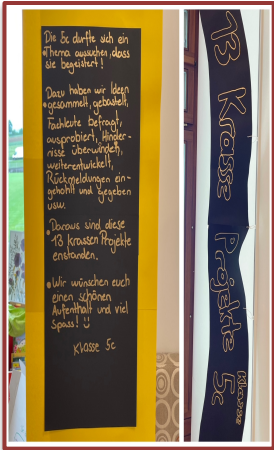 Die 5c durfte sich ein
Thema aussuchen, dass
sie begeistert!
Dazu haben wir Ideen
gesammelt, gebastelt,
Fachleute befragt,
ausprobiert, Hinder-
nisse überwunden,
weiterentwickelt,
Rückmeldungen ein-
geholt und gegeben
usw.
Daraus sind diese
13 krassen Projekte
enstanden.
Wir wünschen euch
einen schönen
Aufenthalt und viel
spass! Ü
Klasse 5c
13 Krasse
Projekte
Klasse
5c